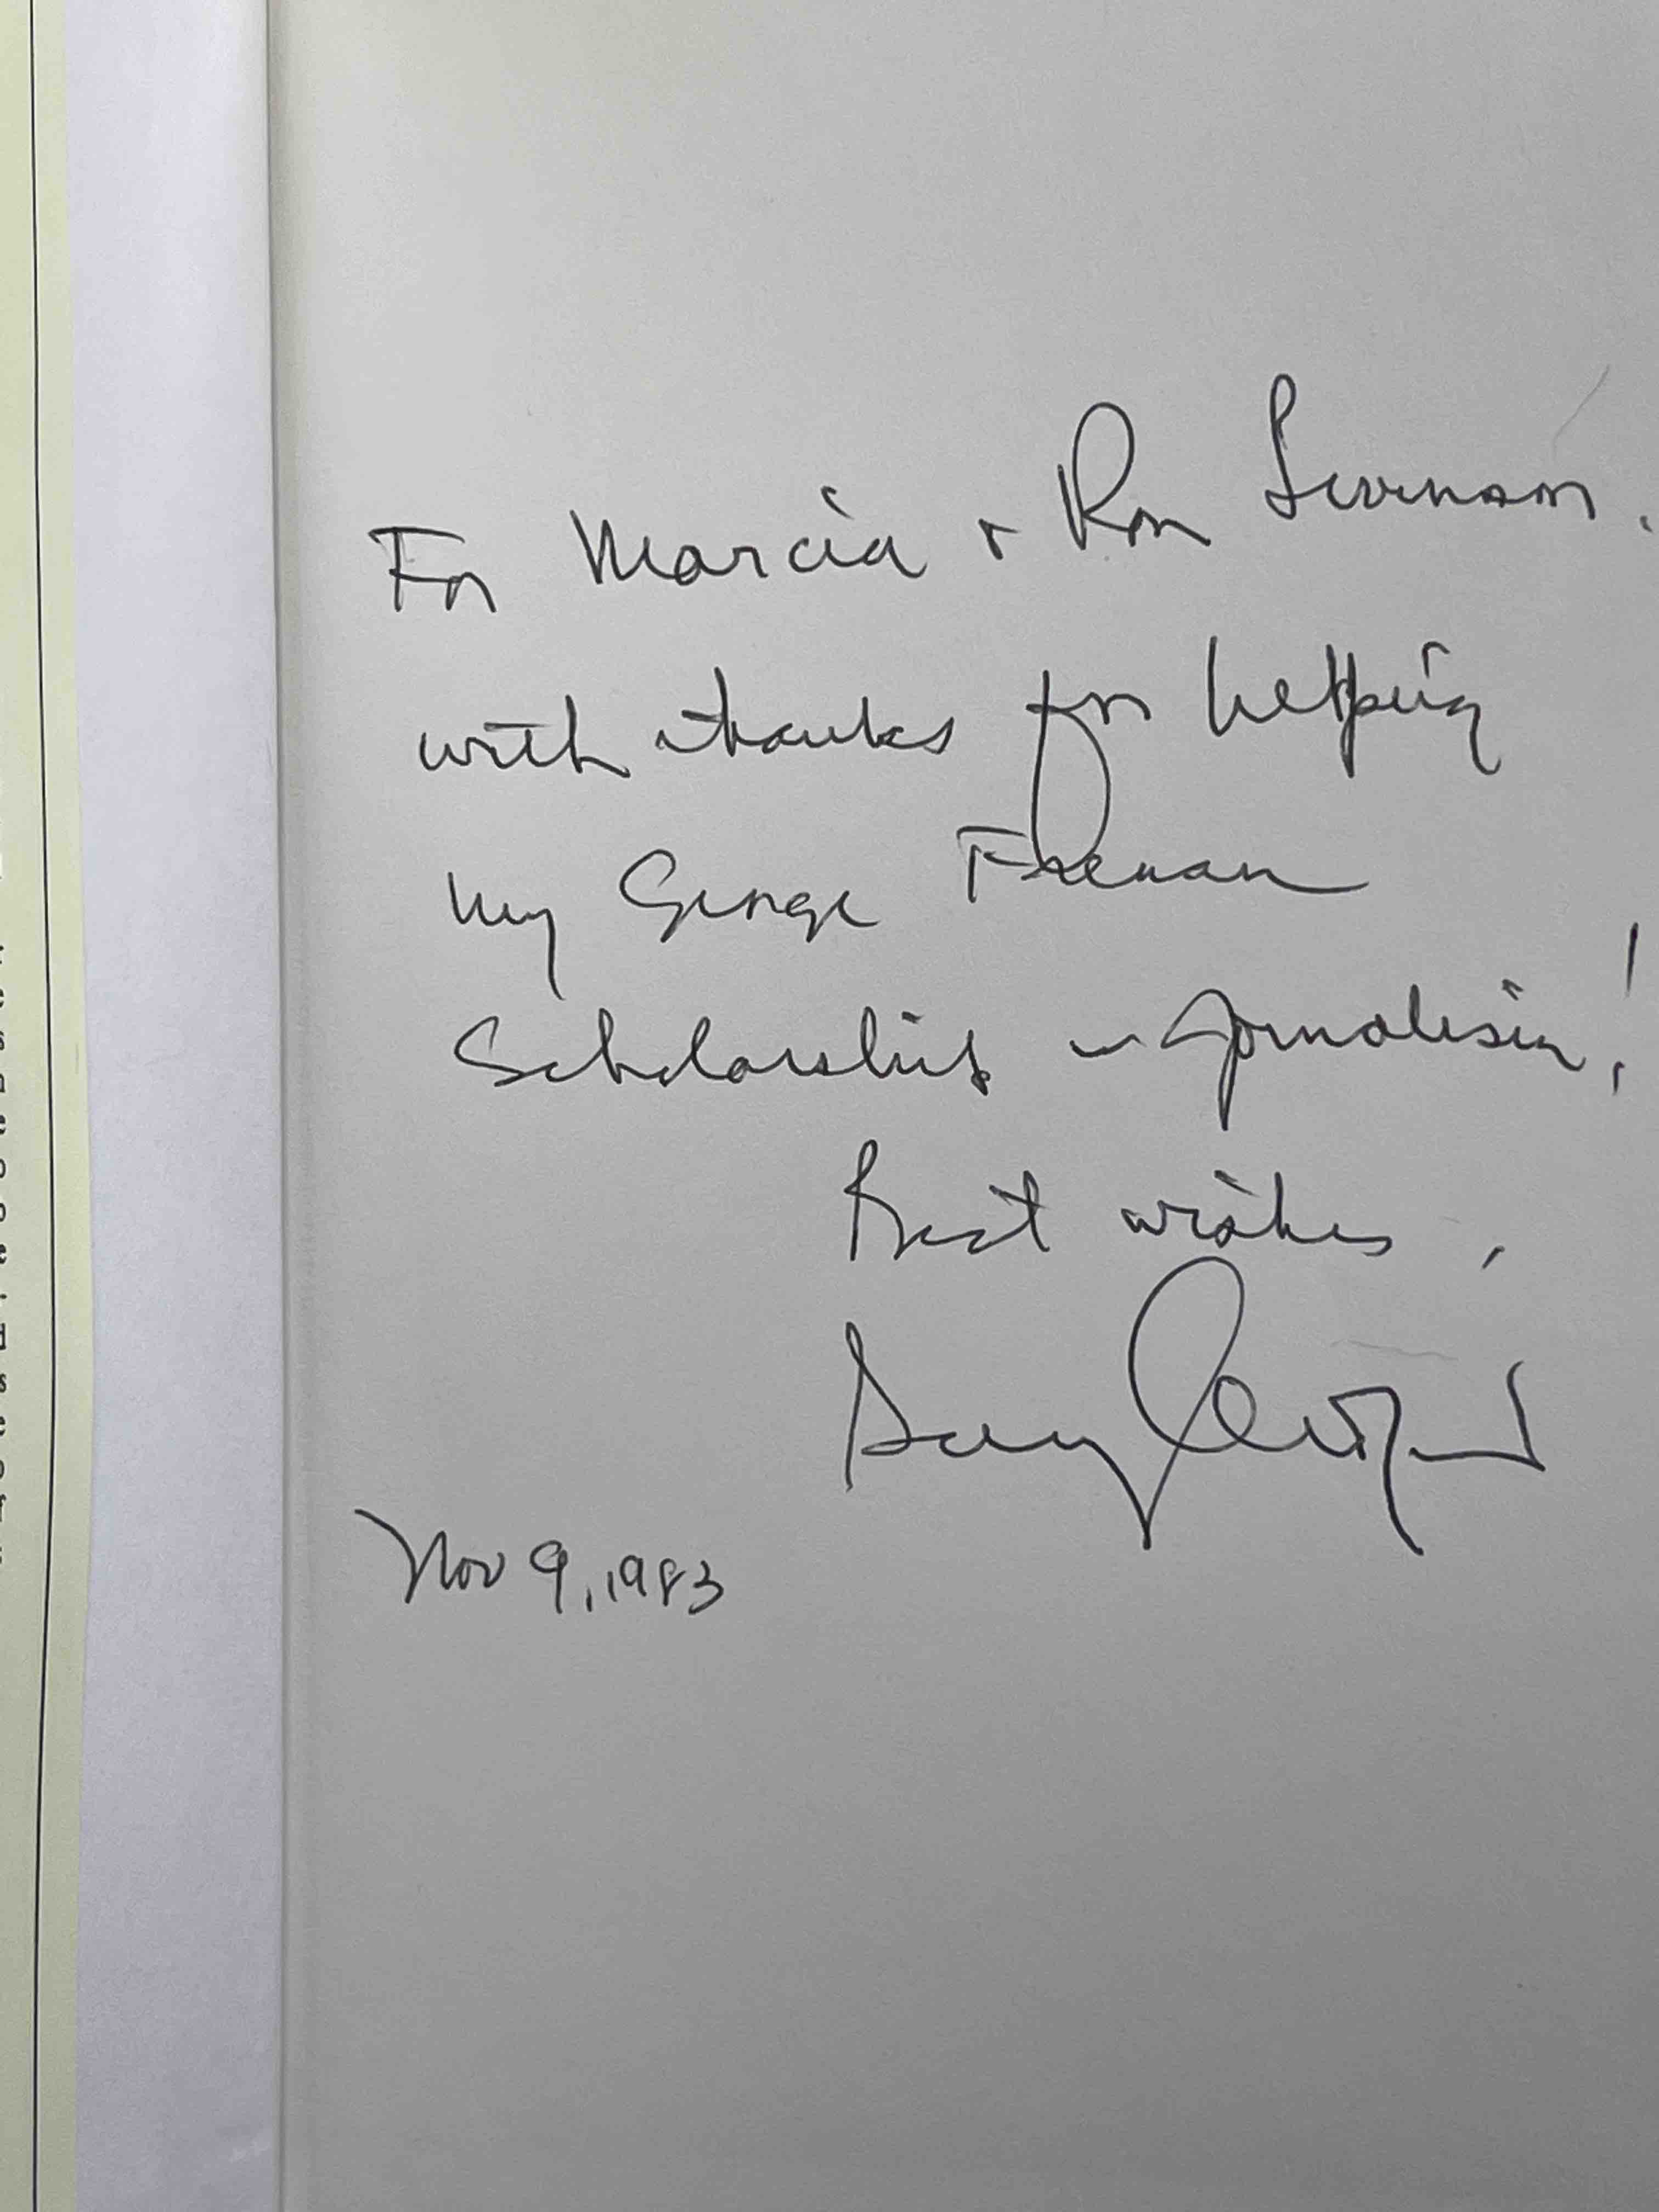 For Marcia + Ron Levinson.
with thanks for helping
my George Freeman
Scholarship in Journalism!
Best wishes,
Nov 9, 1983